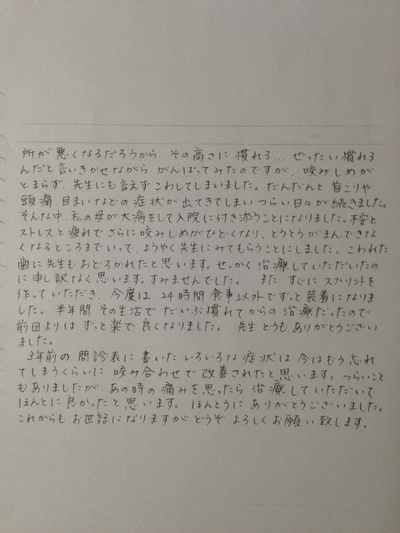 所が悪くなるだろうから、その高さに慣れる…ぜったい慣れる
んだと言いきかせながら がんばってみたのですが、咬みしめが
とまらず、先生にも言えず こわしてしまいました。だんだんと 首こりや
頭痛、目まいなどの症状が出てきてしまい つらい日々が続きました。
そんな中、私の母が大病をして入院に付き添うことになりました。不安と
ストレスと疲れで さらに咬みしめがひどくなり、とうとうがまんできな
くなるところまでいって、ようやく先生にみてもらうことにしました。こわれた
歯に先生もおどろかれたと思います。せっかく治療していただいたの
に申し訳なく思います。すみませんでした。 また すぐにスプリントを
作っていただき、今度は 24時間食事以外でずっと装着になりま
した。半年間 その生活で だいぶ慣れてからの治療だったので
前回よりは ずっと楽で良くなりました。 先生 とうもありがとうござい
ました。
3年前の 問診表に書いた いろいろな症状は 今はもう忘れ
てしまうくらいに 咬み合わせで 改善されたと思います。つらいこと
もありましたが、あの時の痛みを思ったら 治療していただいて
ほんとに良かったと思います。ほんとうに ありがとうございました。
これからも お世話になりますが どうぞ よろしくお願い致します。